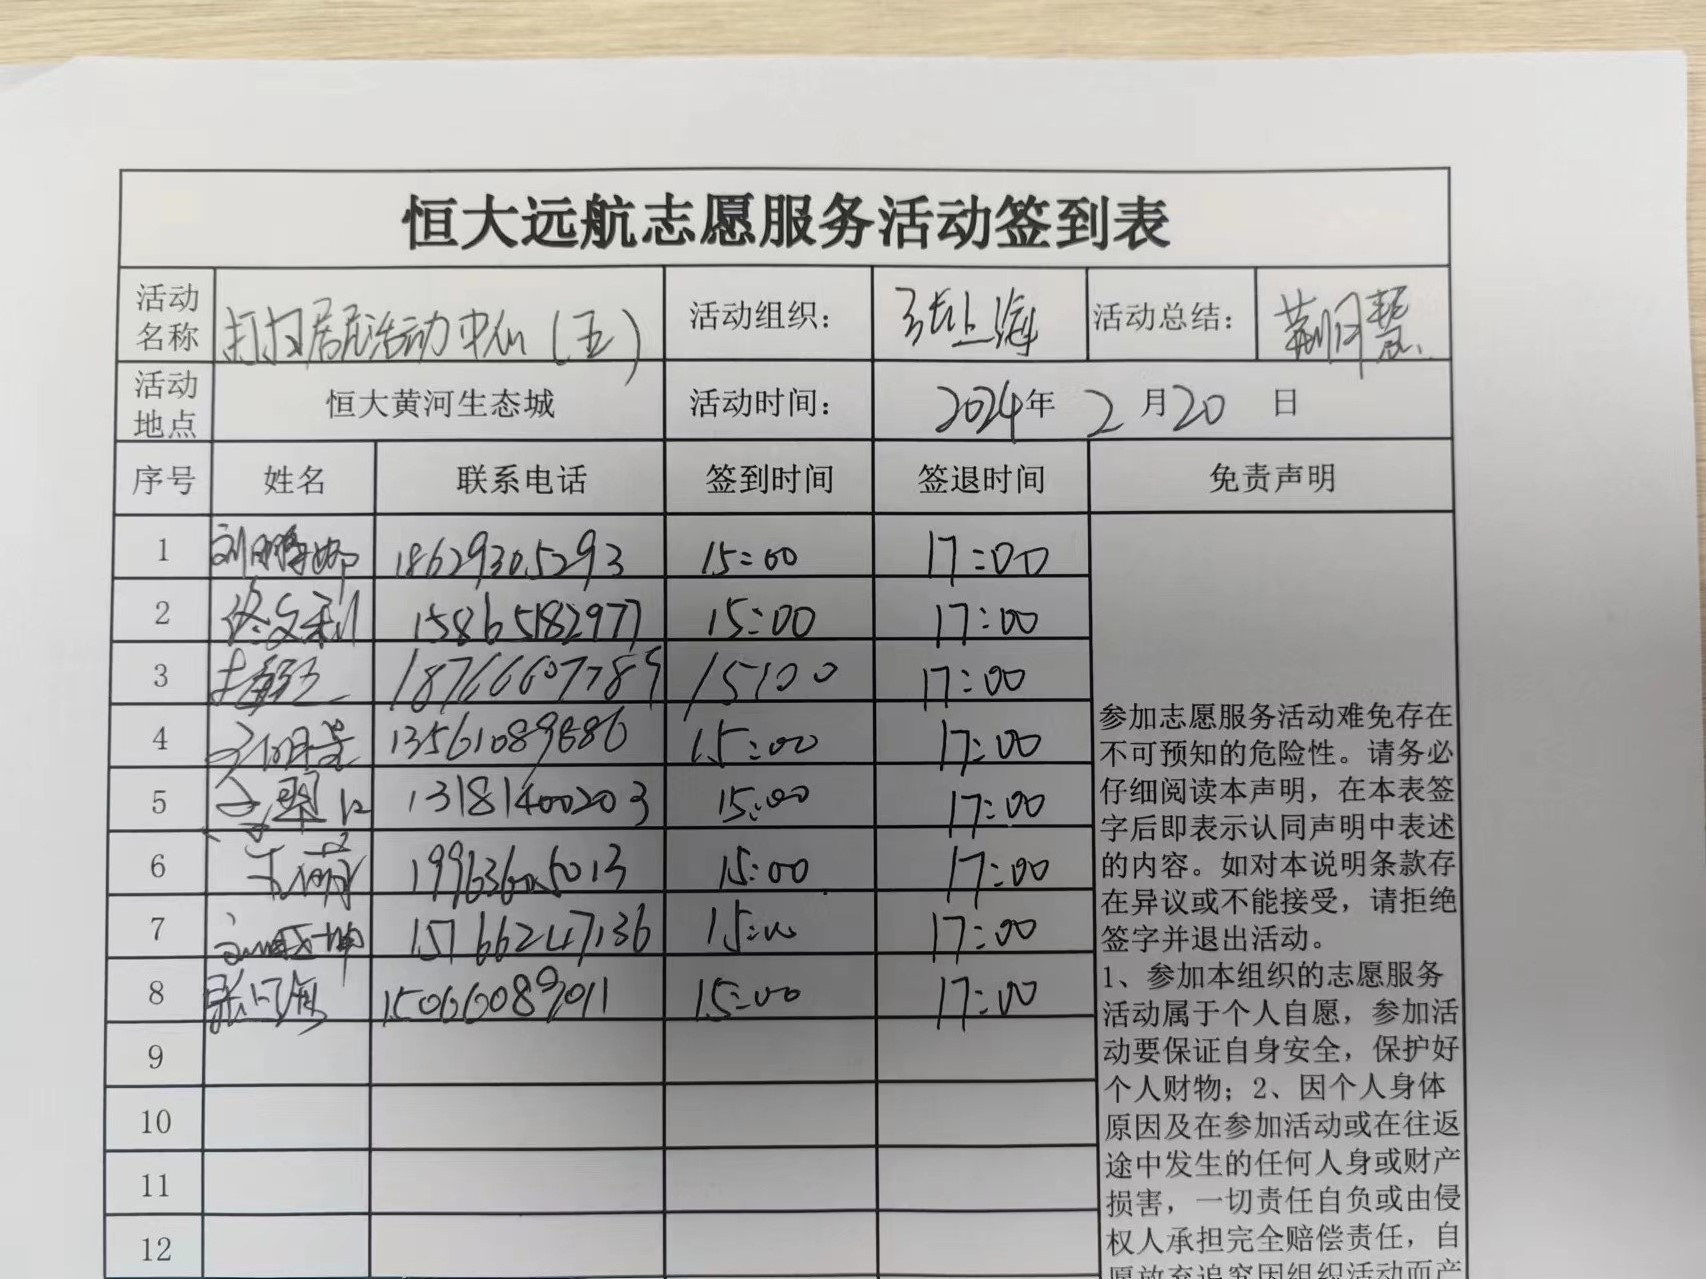 恒大远航志愿服务活动签到表
活动名称 打扫居民活动中心(五) 活动组织: 张上海 活动总结: 荆月慧
活动地点 恒大黄河生态城 活动时间: 2024年2月20日
序号 姓名 联系电话 签到时间 签退时间 免责声明
1 18629305293 15:00 17:00
2 15865182977 15:00 17:00
3 18766607789 15:00 17:00
4 13561089686 15:00 17:00
5 13181400203 15:00 17:00
6 19963605013 15:00 17:00
7 15766247136 15:00 17:00
8 15066089011 15:00 17:00
9
10
11
12
参加志愿服务活动难免存在
不可预知的危险性。请务必
仔细阅读本声明,在本表签
字后即表示认同声明中表述
的内容。如对本说明条款存
在异议或不能接受,请拒绝
签字并退出活动。
1、参加本组织的志愿服务
活动属于个人自愿,参加活
动要保证自身安全,保护好
个人财物;2、因个人身体
原因及在参加活动或在往返
途中发生的任何人身或财产
损害,一切责任自负或由侵
权人承担完全赔偿责任,自
愿放弃追究因组织活动而产